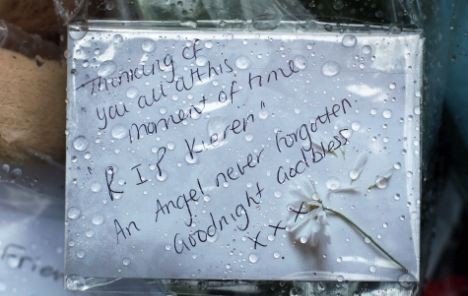 Thinking of
you all at this
moment of time
"R I P Kieren"
An Angel never forgotten
Goodnight God bless
x x x
Frien